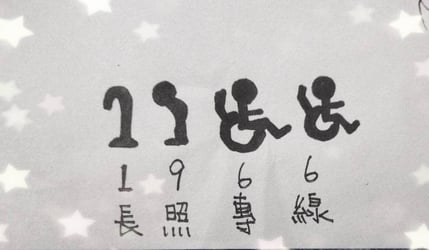 1 9 6 6
長照專線